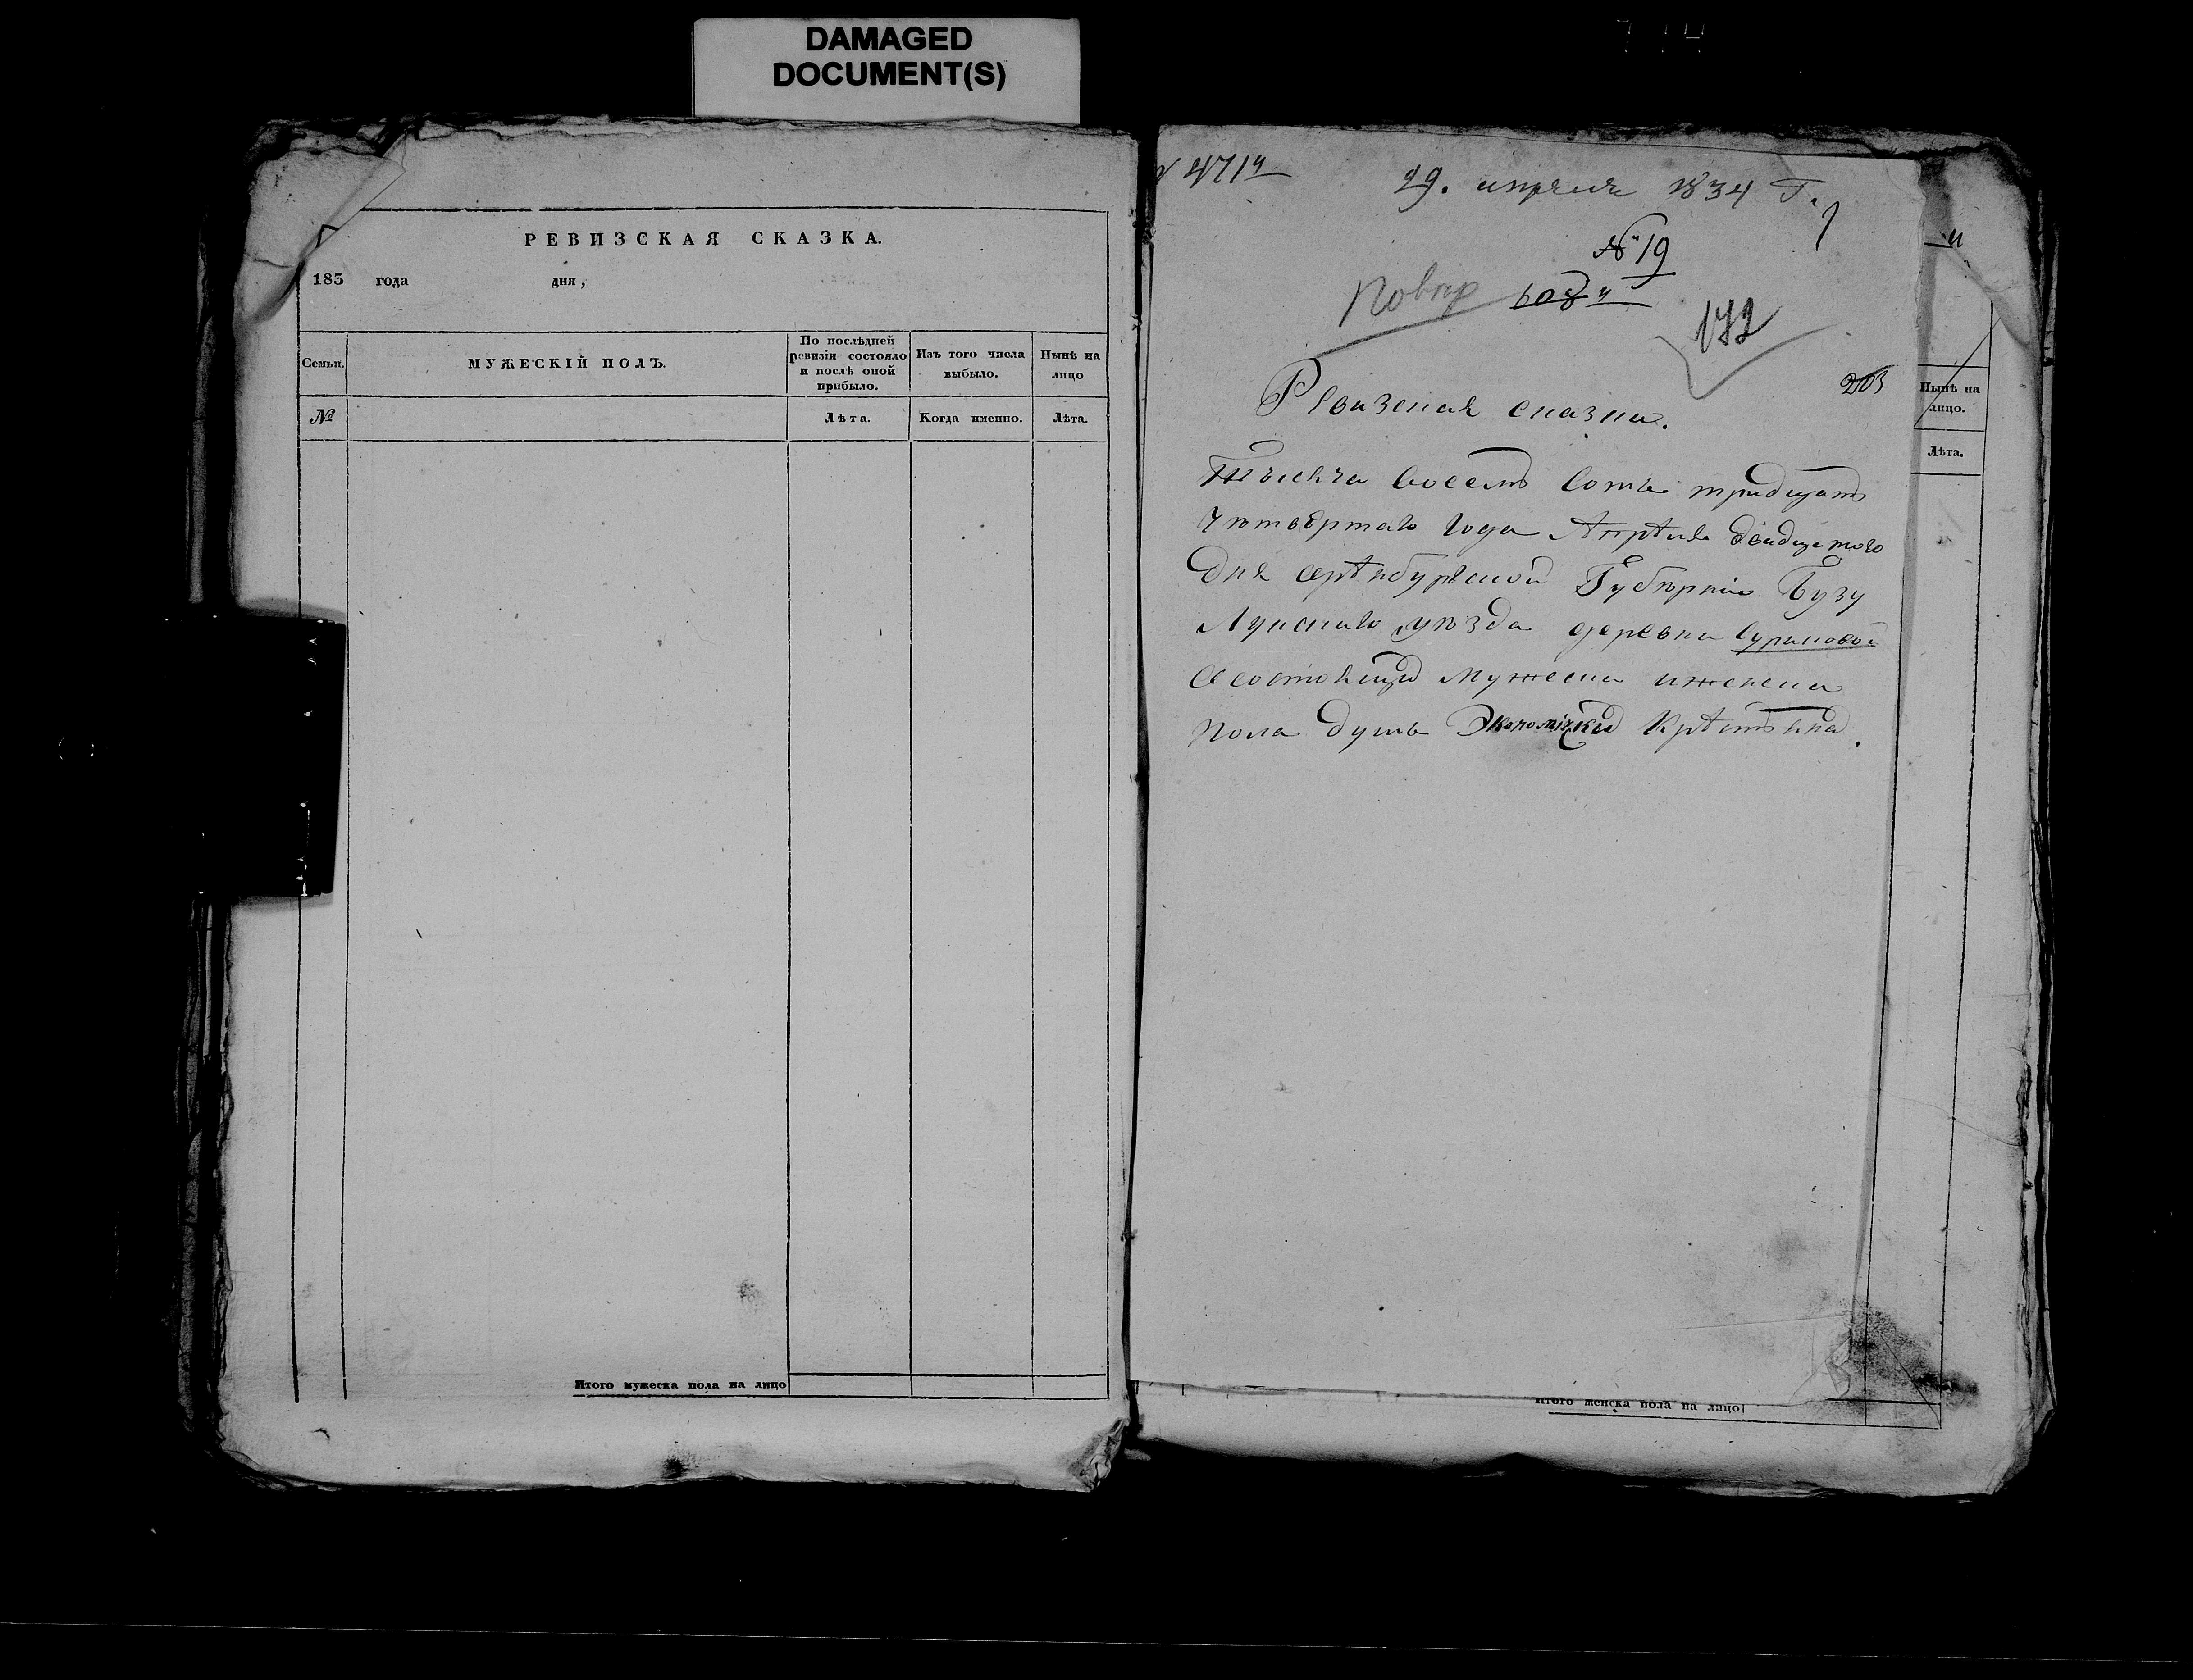 DAMAGED
DOCUMENT(S)
РЕВИЗСКАЯ СКАЗКА.
183 года дня,
Семьи.
МУЖЕСКІЙ ПОЛЪ.
По послѣдней
ревизіи состояло
и послѣ оной
прибыло.
Изъ того числа
выбыло.
Нынѣ на
лицо
№
Лѣта.
Когда именно.
Лѣта.
Итого мужеска пола на лицо
№ 471й
29. апреля 1834 г.
№ 19
172
203
Ревизская сказка.
Тысяча восемъ сотъ тридцать
четвертаго года Апрѣля двадцатого
дня Орѣнбургской Губѣрніи Бузу
Лукскаго уѣзда деревни Суриковой
Состоящихъ мужеска и женска
пола душъ Экономическихъ Крѣстьянъ.
Нынѣ на
лицо.
Лѣта.
Итого женска пола на лицо